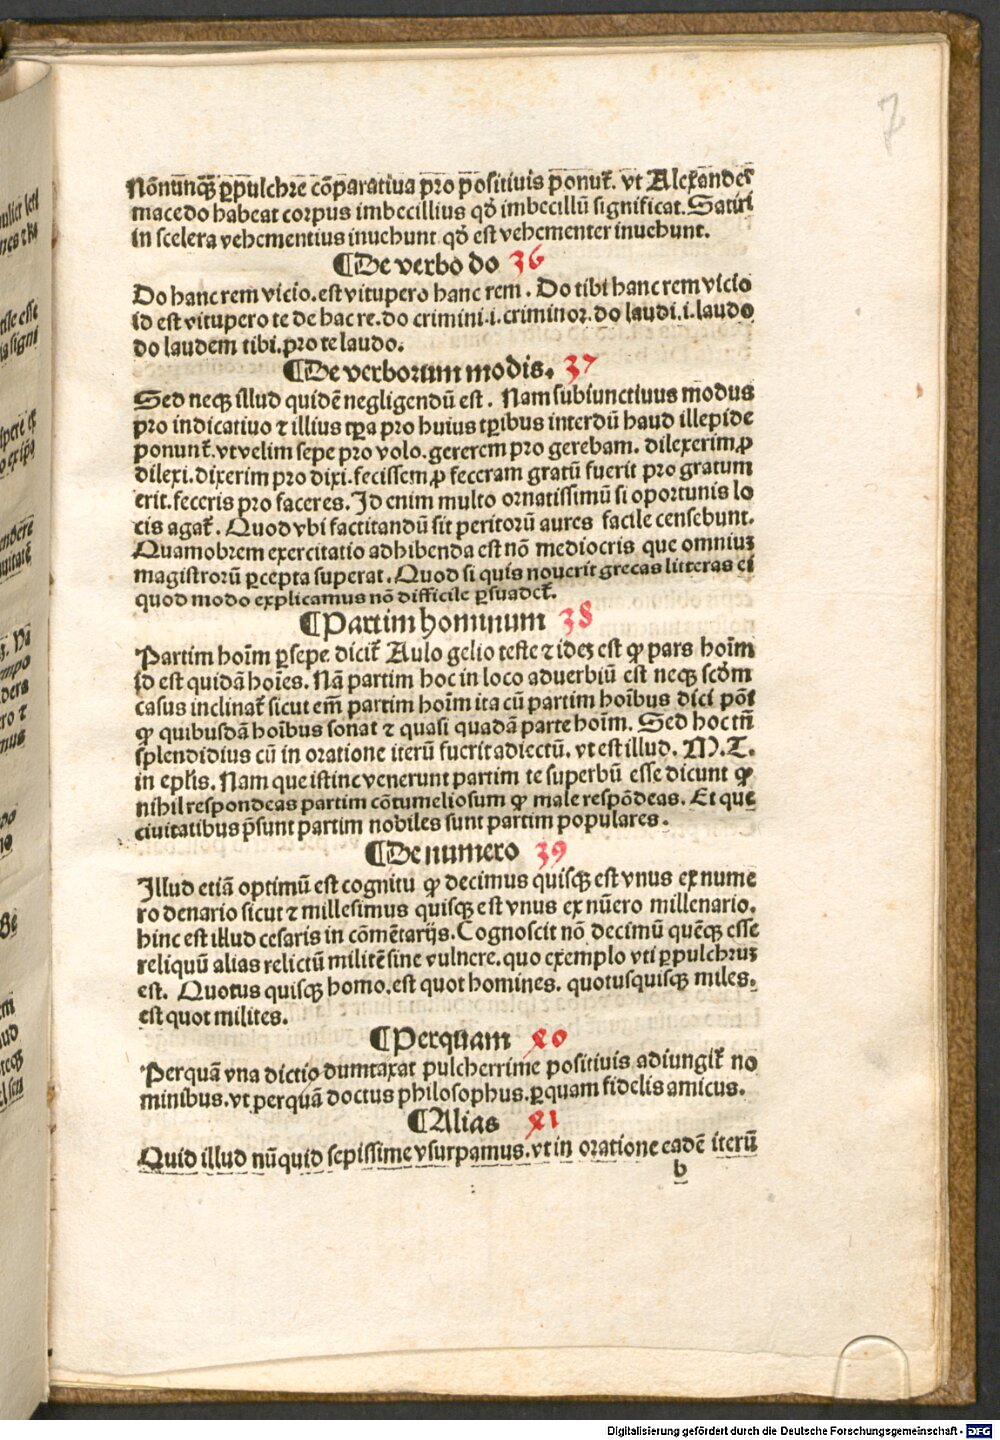 7
Nōnunq̄ꝫ ꝑpulchre cōparatiua pro positiuis ponunt̄. vt Alexander
macedo habeat corpus imbecillius qď imbecillū significat. Satiri
in scelera vehementius inuehunt qď est vehementer inuehunt.
¶De verbo do 36
Do hanc rem vicio. est vitupero hanc rem. Do tibi hanc rem vicio
id est vitupero te de hac re. do crimini .i. criminor. do laudi .i. laudo
do laudem tibi. pro te laudo.
¶De verborum modis. 37
Sed neqꝫ illud quidē negligendū est. Nam subiunctiuus modus
pro indicatiuo ⁊ illius tꝑa pro huius tꝑibus interdū haud illepide
ponunt̄. vt velim sepe pro volo. gererem pro gerebam. dilexerim ꝓ
dilexi. dixerim pro dixi. fecissem ꝓ feceram gratū fuerit pro gratum
erit. feceris pro faceres. Id enim multo ornatissimū si oportunis lo
cis agat̄. Quod vbi factitandū sit peritorū aures facile censebunt.
Quamobrem exercitatio adhibenda est nō mediocris que omniuꝫ
magistrorū ꝑcepta superat. Quod si quis nouerit grecas litteras ei
quod modo explicamus nō difficile ꝑsuadet̄.
¶Partim hominum 38
Partim hoīm ꝑsepe dicit̄ Aulo gelio teste ⁊ ideꝫ est ꝙ pars hoīm
id est quidā hoīes. Nā partim hoc in loco aduerbiū est neqꝫ scďm
casus inclinat̄ sicut em̄ partim hoīm ita cū partim hoībus dici pōt
ꝙ quibusdā hoībus sonat ⁊ quasi quadā parte hoīm. Sed hoc tn̄
splendidius cū in oratione iterū fuerit adiectū. vt est illud. M. T.
in epl̄is. Nam que istinc venerunt partim te superbū esse dicunt ꝙ
nihil respondeas partim cōtumeliosum ꝙ male respōdeas. Et que
ciuitatibus p̄sunt partim nobiles sunt partim populares.
¶De numero 39
Illud etiā optimū est cognitu ꝙ decimus quisqꝫ est vnus ex nume
ro denario sicut ⁊ millesimus quisqꝫ est vnus ex nūero millenario.
hinc est illud cesaris in cōmētarijs. Cognoscit nō decimū quēqꝫ esse
reliquū alias relictū militē sine vulnere. quo exemplo vti ꝑpulchruꝫ
est. Quotus quisqꝫ homo. est quot homines. quotusquisqꝫ miles.
est quot milites.
¶Perquam 40
Perquā vna dictio dumtaxat pulcherrime positiuis adiungit̄ no
minibus. vt perquā doctus philosophus. ꝑquam fidelis amicus.
¶Alias 41
Quid illud nūquid sepissime vsurpamus. vt in oratione eadē iterū
b
Digitalisierung gefördert durch die Deutsche Forschungsgemeinschaft - DFG